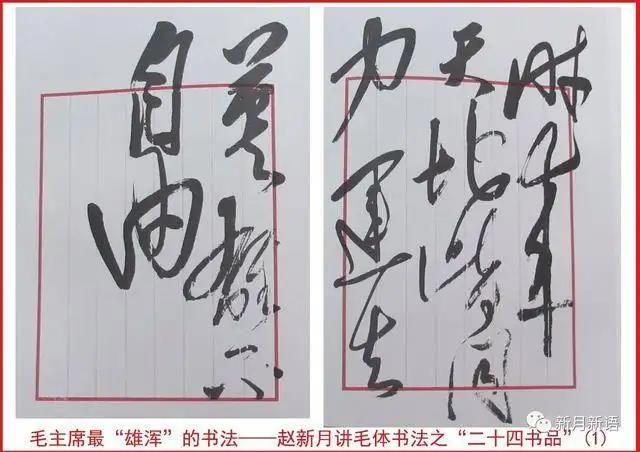 时来
天地皆同
力運去
英雄不
自由
新月新语
毛主席最“雄浑”的书法——赵新月讲毛体书法之“二十四书品”(1)